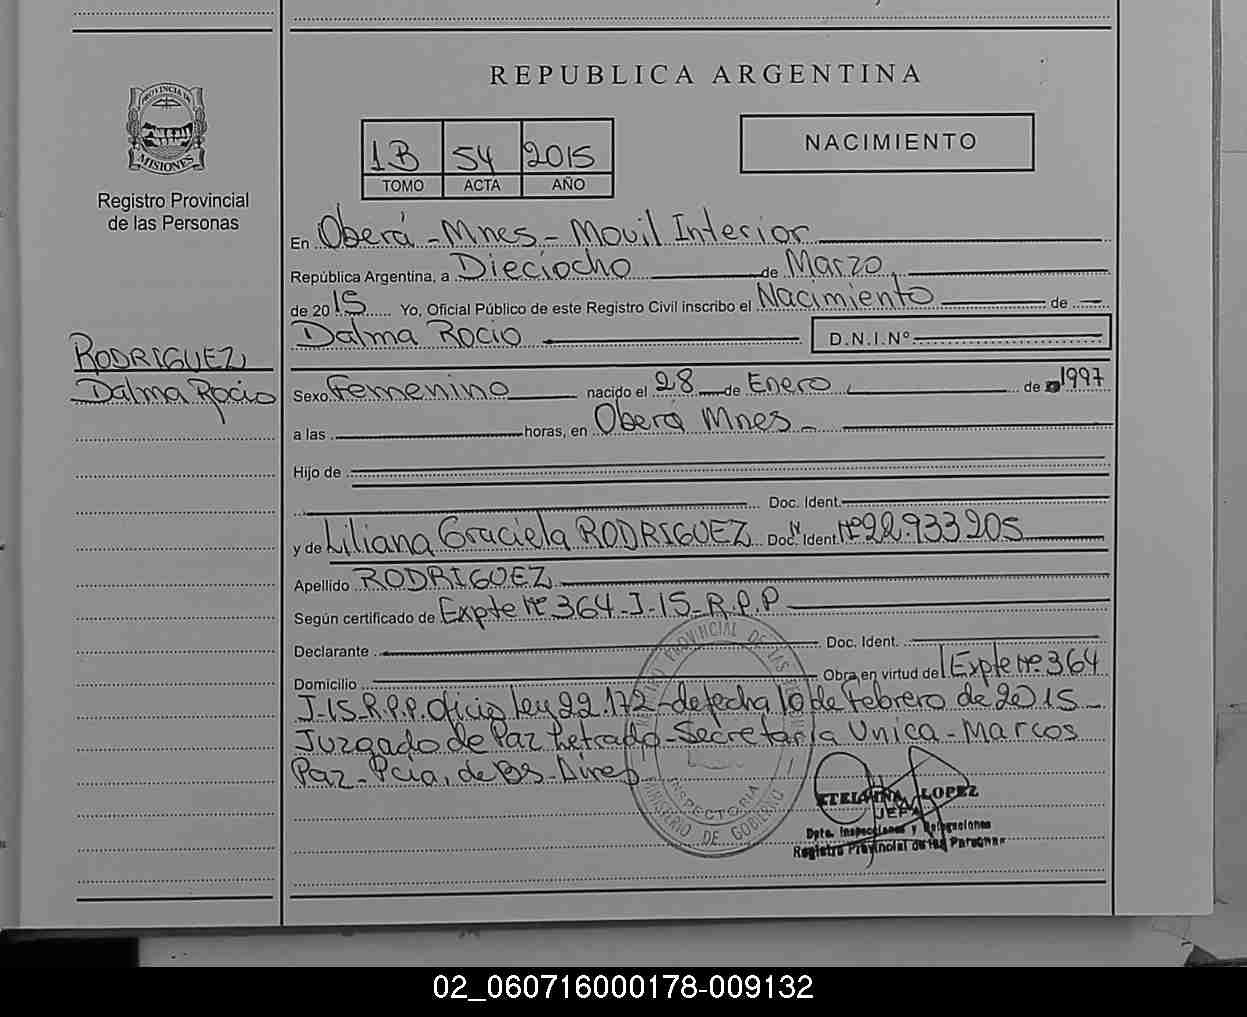 REPUBLICA ARGENTINA
PROVINCIA DE
MISIONES
Registro Provincial
de las Personas
1B 54 2015
TOMO ACTA AÑO
NACIMIENTO
En Oberá - Mnes - Movil Interior
República Argentina, a Dieciocho de Marzo
de 2015 Yo, Oficial Público de este Registro Civil inscribo el Nacimiento de
Dalma Rocio D.N.I.Nº
RODRIGUEZ
Dalma Rocio
Sexo Femenino nacido el 28 de Enero de 1997
a las horas, en Oberá Mnes -
Hijo de
Doc. Ident.
y de Liliana Graciela RODRIGUEZ Doc. Ident. Nº 22.933205
Apellido RODRIGUEZ
Según certificado de Expte Nº 364-J-15-R.P.P
Declarante Doc. Ident.
Domicilio Obra en virtud del Expte Nº 364
J-15-R.P.P. Oficio ley 22.172 - de fecha 10 de Febrero de 2015 -
Juzgado de Paz Letrado - Secretaría Unica - Marcos
Paz - Pcia. de Bs - Aires
PROVINCIAL DE LAS
INSPECTORIA
MINISTERIO DE GOBIERNO
LOPEZ
JEFA
Dpto. Inspecciones y Delegaciones
Registro Provincial de las Personas
02_060716000178-009132